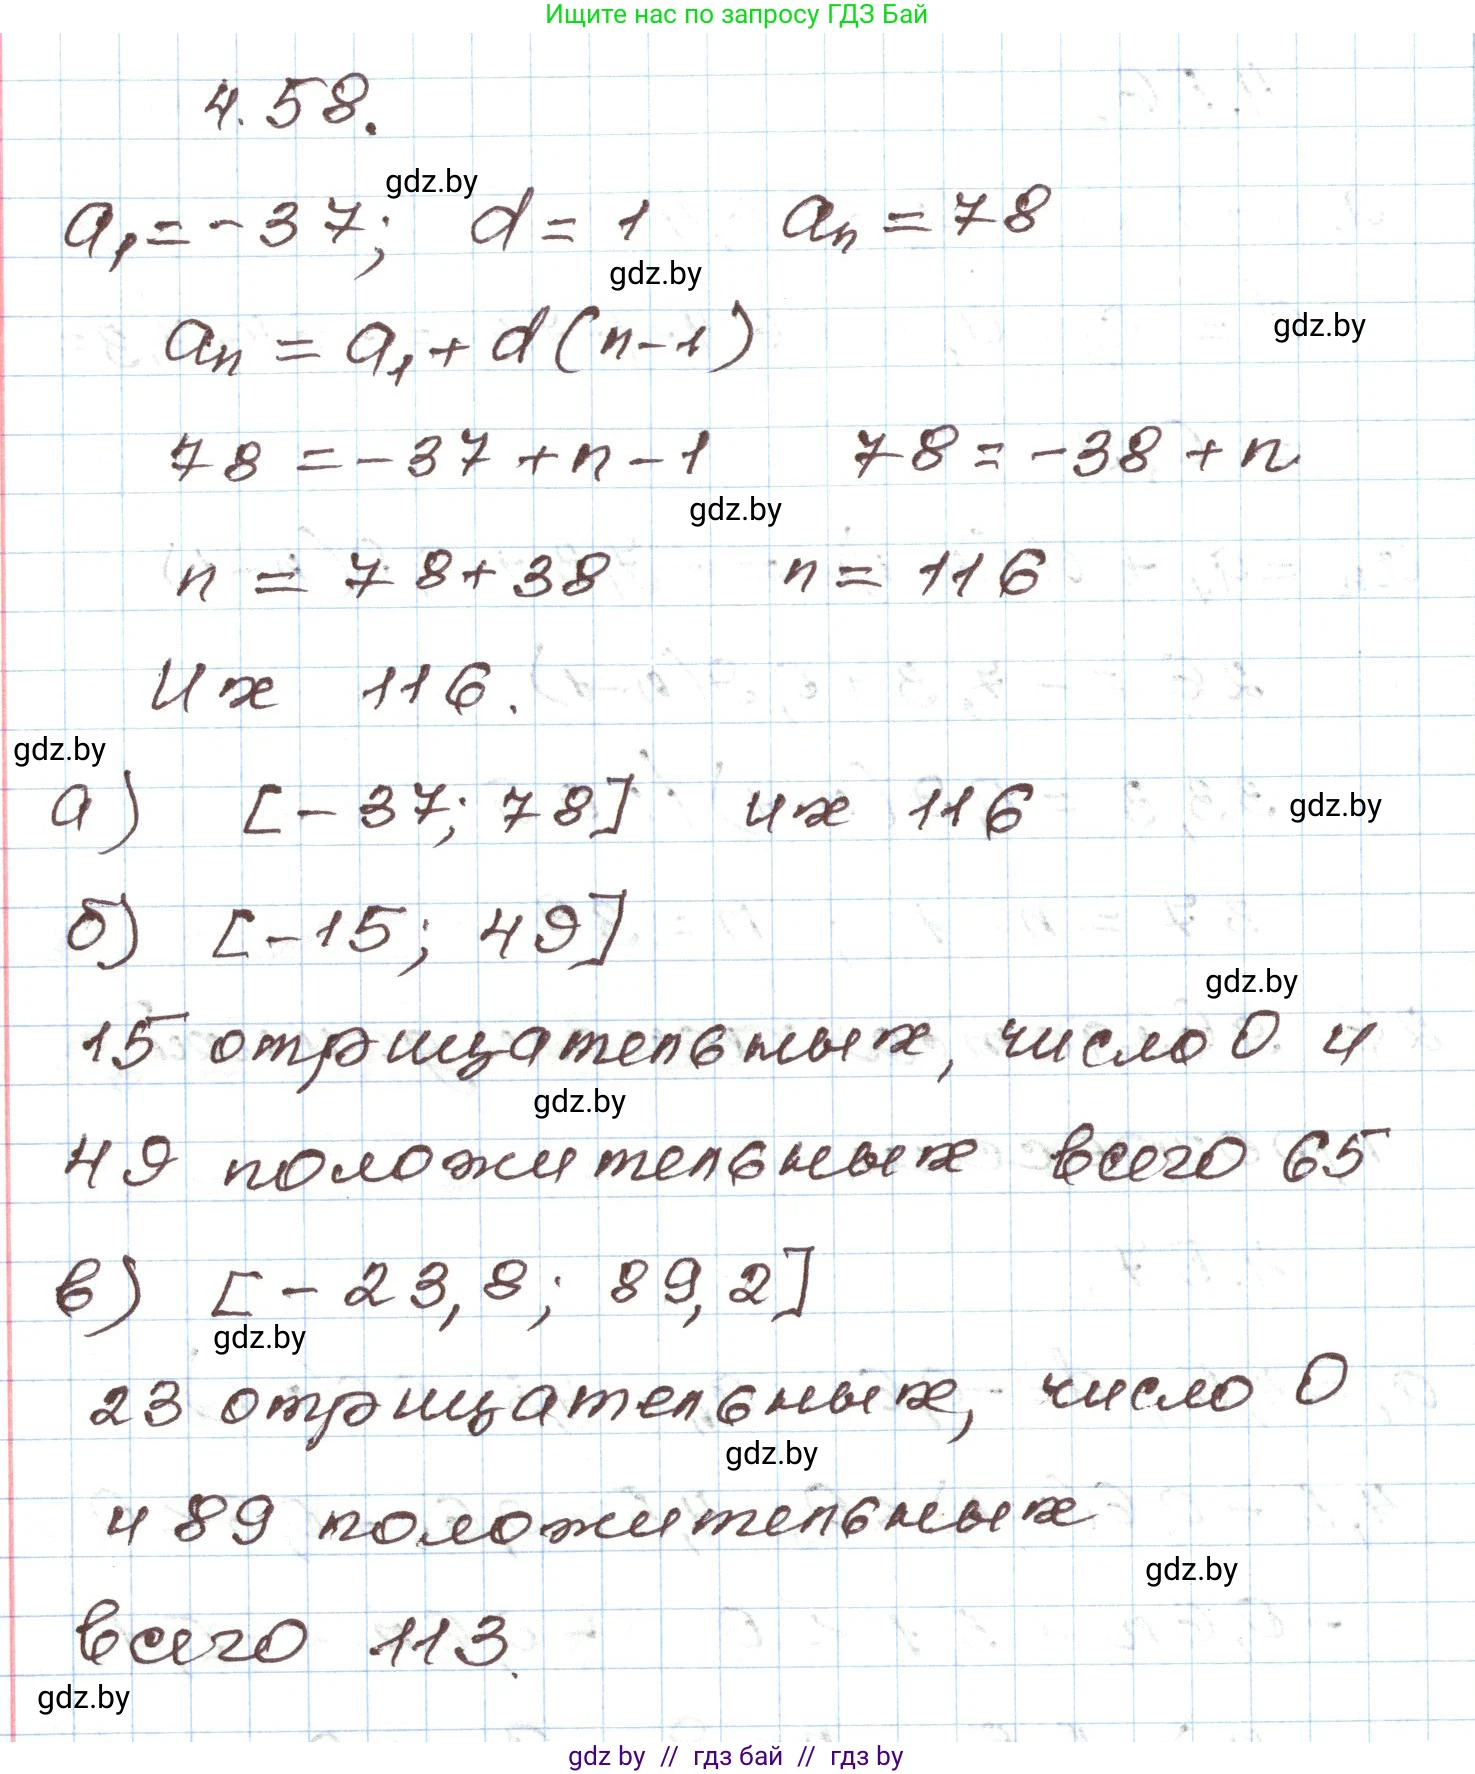 Ищите нас по запросу ГДЗ Бай
4.58.
gdz.by
a₁=-37; d=1 aₙ=78
gdz.by
aₙ=a₁+d(n-1)
gdz.by
78=-37+n-1 78=-38+n
gdz.by
n=78+38 n=116
Их 116.
gdz.by
а) [-37; 78] их 116
gdz.by
б) [-15; 49]
gdz.by
15 отрицательных, число 0 и
gdz.by
49 положительных всего 65
в) [-23,8; 89,2]
gdz.by
23 отрицательных, число 0
gdz.by
и 89 положительных
gdz.by
всего 113.
gdz.by
gdz by // гдз бай // гдз by